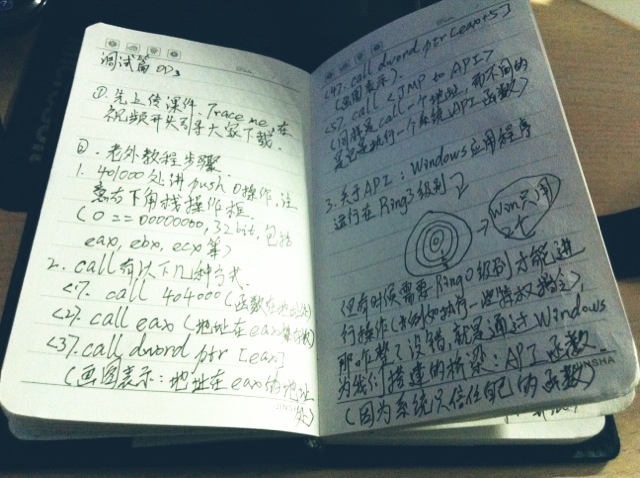 调试篇 003
①. 先上传课件. Trace me, 在
视频开头引导大家下载.
②. 老外教程步骤
1. 401000处进push 0操作, 注
意右下角栈操作框.
(0 == 00000000, 32bit, 包括
eax, ebx, ecx 等)
2. call有以下几种方式.
<1>. call 404000 (函数在地址处)
<2>. call eax (地址在eax
<3>. call dword ptr [eax]
(画图表示: 地址在eax的地址
处)
<4>. call dword ptr [eax+5]
(画图表示).
<5>. call <JMP to API>
(同样是call一个地址, 而不同的
是它是执行一个系统API函数)
3. 关于API: Windows应用程序
运行在Ring3级别
Win只用
2个
(但有时候需要Ring0级别才能进
行操作(例如执行一些特权指令),
那咋整? 没错, 就是通过Windows
为我们搭建的桥梁: API函数.
(因为系统只信任自己的函数)